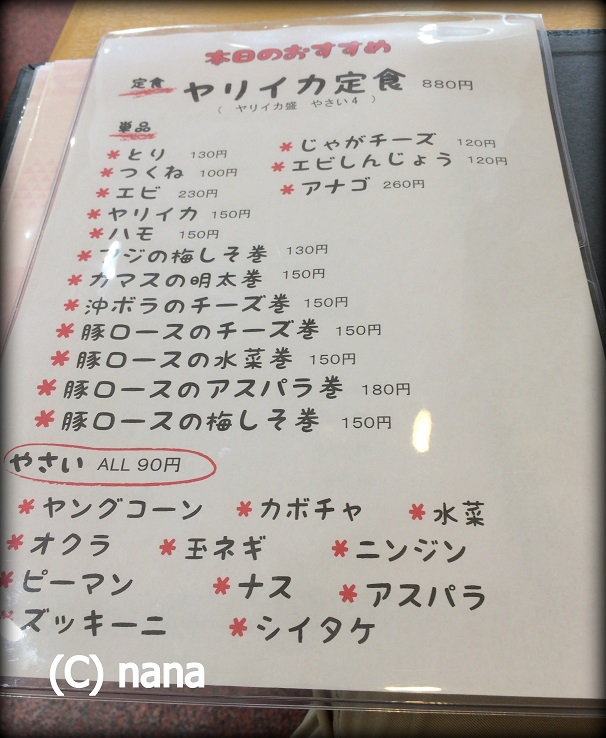 本日のおすすめ
定食 ヤリイカ定食 880円
( ヤリイカ盛 やさい4 )
単品
*とり 130円 *じゃがチーズ 120円
*つくね 100円 *エビしんじょう 120円
*エビ 230円 *アナゴ 260円
*ヤリイカ 150円
*ハモ 150円
*アジの梅しそ巻 130円
*カマスの明太巻 150円
*沖ボラのチーズ巻 150円
*豚ロースのチーズ巻 150円
*豚ロースの水菜巻 150円
*豚ロースのアスパラ巻 180円
*豚ロースの梅しそ巻 150円
やさい ALL 90円
*ヤングコーン *カボチャ *水菜
*オクラ *玉ネギ *ニンジン
*ピーマン *ナス *アスパラ
*ズッキーニ *シイタケ
(C) nana